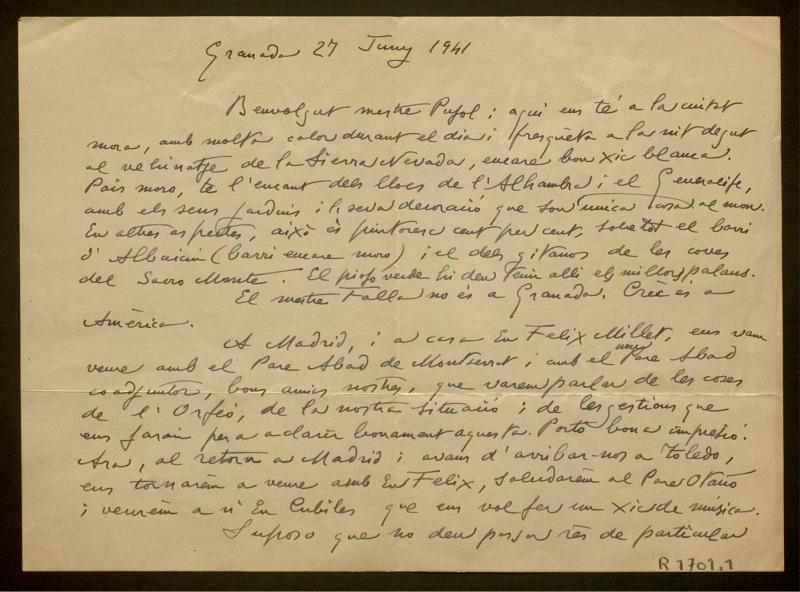 Granada 27 Juny 1941
Benvolgut mestre Pujol: aquí ens té a la ciutat
mora, amb molta calor durant el dia i fresqueta a la nit degut
al vehinatge de la Sierra Nevada, encare bon xic blanca.
País moro, té l'encant dels llocs de l'Alhambra i el Generalife,
amb els seus jardins i la seva decoració que son única cosa al mon.
En altres aspectes, aixó és pintoresc cent per cent, sobretot el barri
d'Albaicin (barri encare moro) i el dels gitanos de les coves
del Sacro Monte. El piojo verde hi deu tenir allí els millors palaus.
El mestre Falla no és a Granada. Crec és a
Amèrica.
A Madrid, i a casa En Felix Millet, ens vam
veure amb el Pare Abad de Montserrat i amb el nou Pare Abad
coadjutor, bons amics nostres, que varem parlar de les coses
de l'Orfeó, de la nostra situació i de les gestions que
ens faràn per a aclarir bonament aquesta. Porto bona impresió.
Ara, al retorn a Madrid i avans d'arribar-nos a Toledo,
ens tornarèm a veure amb En Felix, saludarèm al Pare Otaño
i veurèm a n'En Cubiles que ens vol fer un xic de música.
Suposo que no deu passar rès de particular
R 1701,1